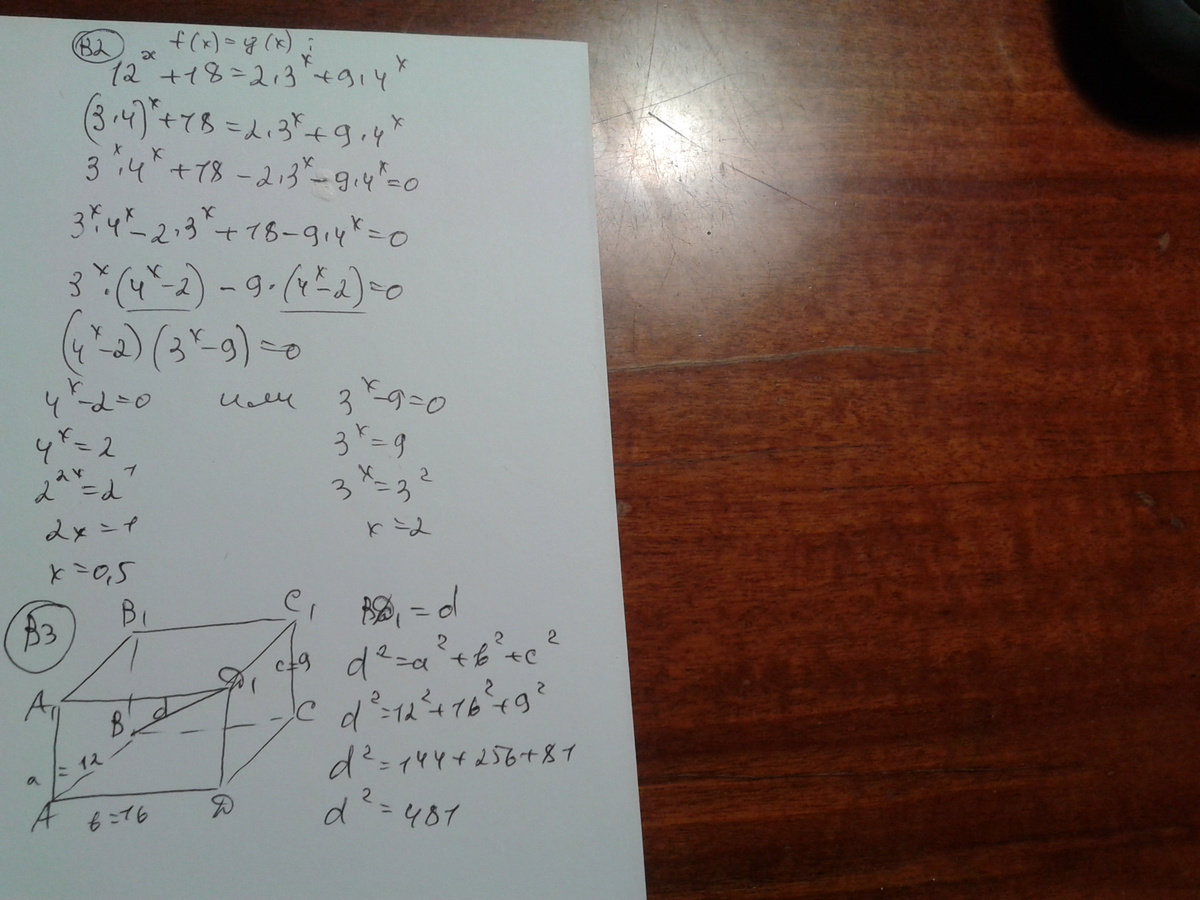 B2 f(x)=g(x);
12^x+18=2·3^x+9·4^x
(3·4)^x+18=2·3^x+9·4^x
3^x·4^x+18-2·3^x-9·4^x=0
3^x·4^x-2·3^x+18-9·4^x=0
3^x·(4^x-2)-9·(4^x-2)=0
(4^x-2)(3^x-9)=0
4^x-2=0 или 3^x-9=0
4^x=2 3^x=9
2^2x=2^1 3^x=3^2
2x=1 x=2
x=0,5
B3
B₁ C₁
A₁ D₁
c=9
d
B C
a=12
A D
b=16
BD₁=d
d²=a²+b²+c²
d²=12²+16²+9²
d²=144+256+81
d²=481